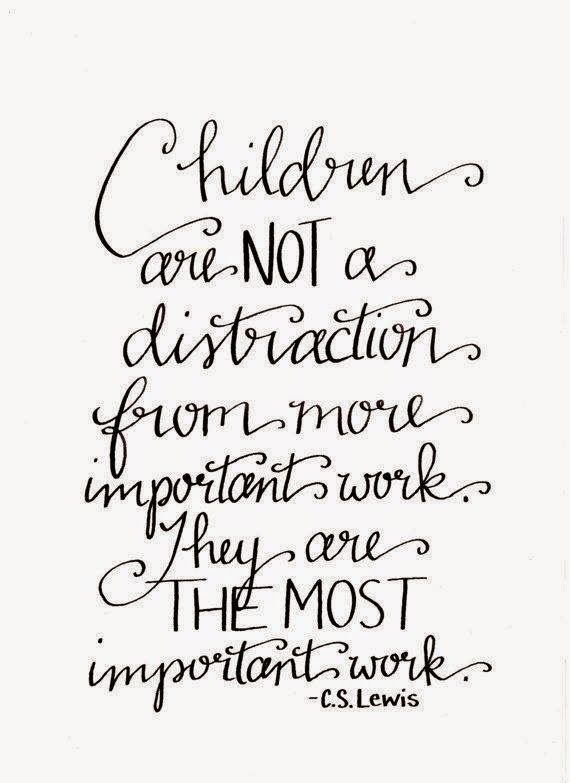 Children
are NOT a
distraction
from more
important work.
They are
THE MOST
important work.
-C.S. Lewis